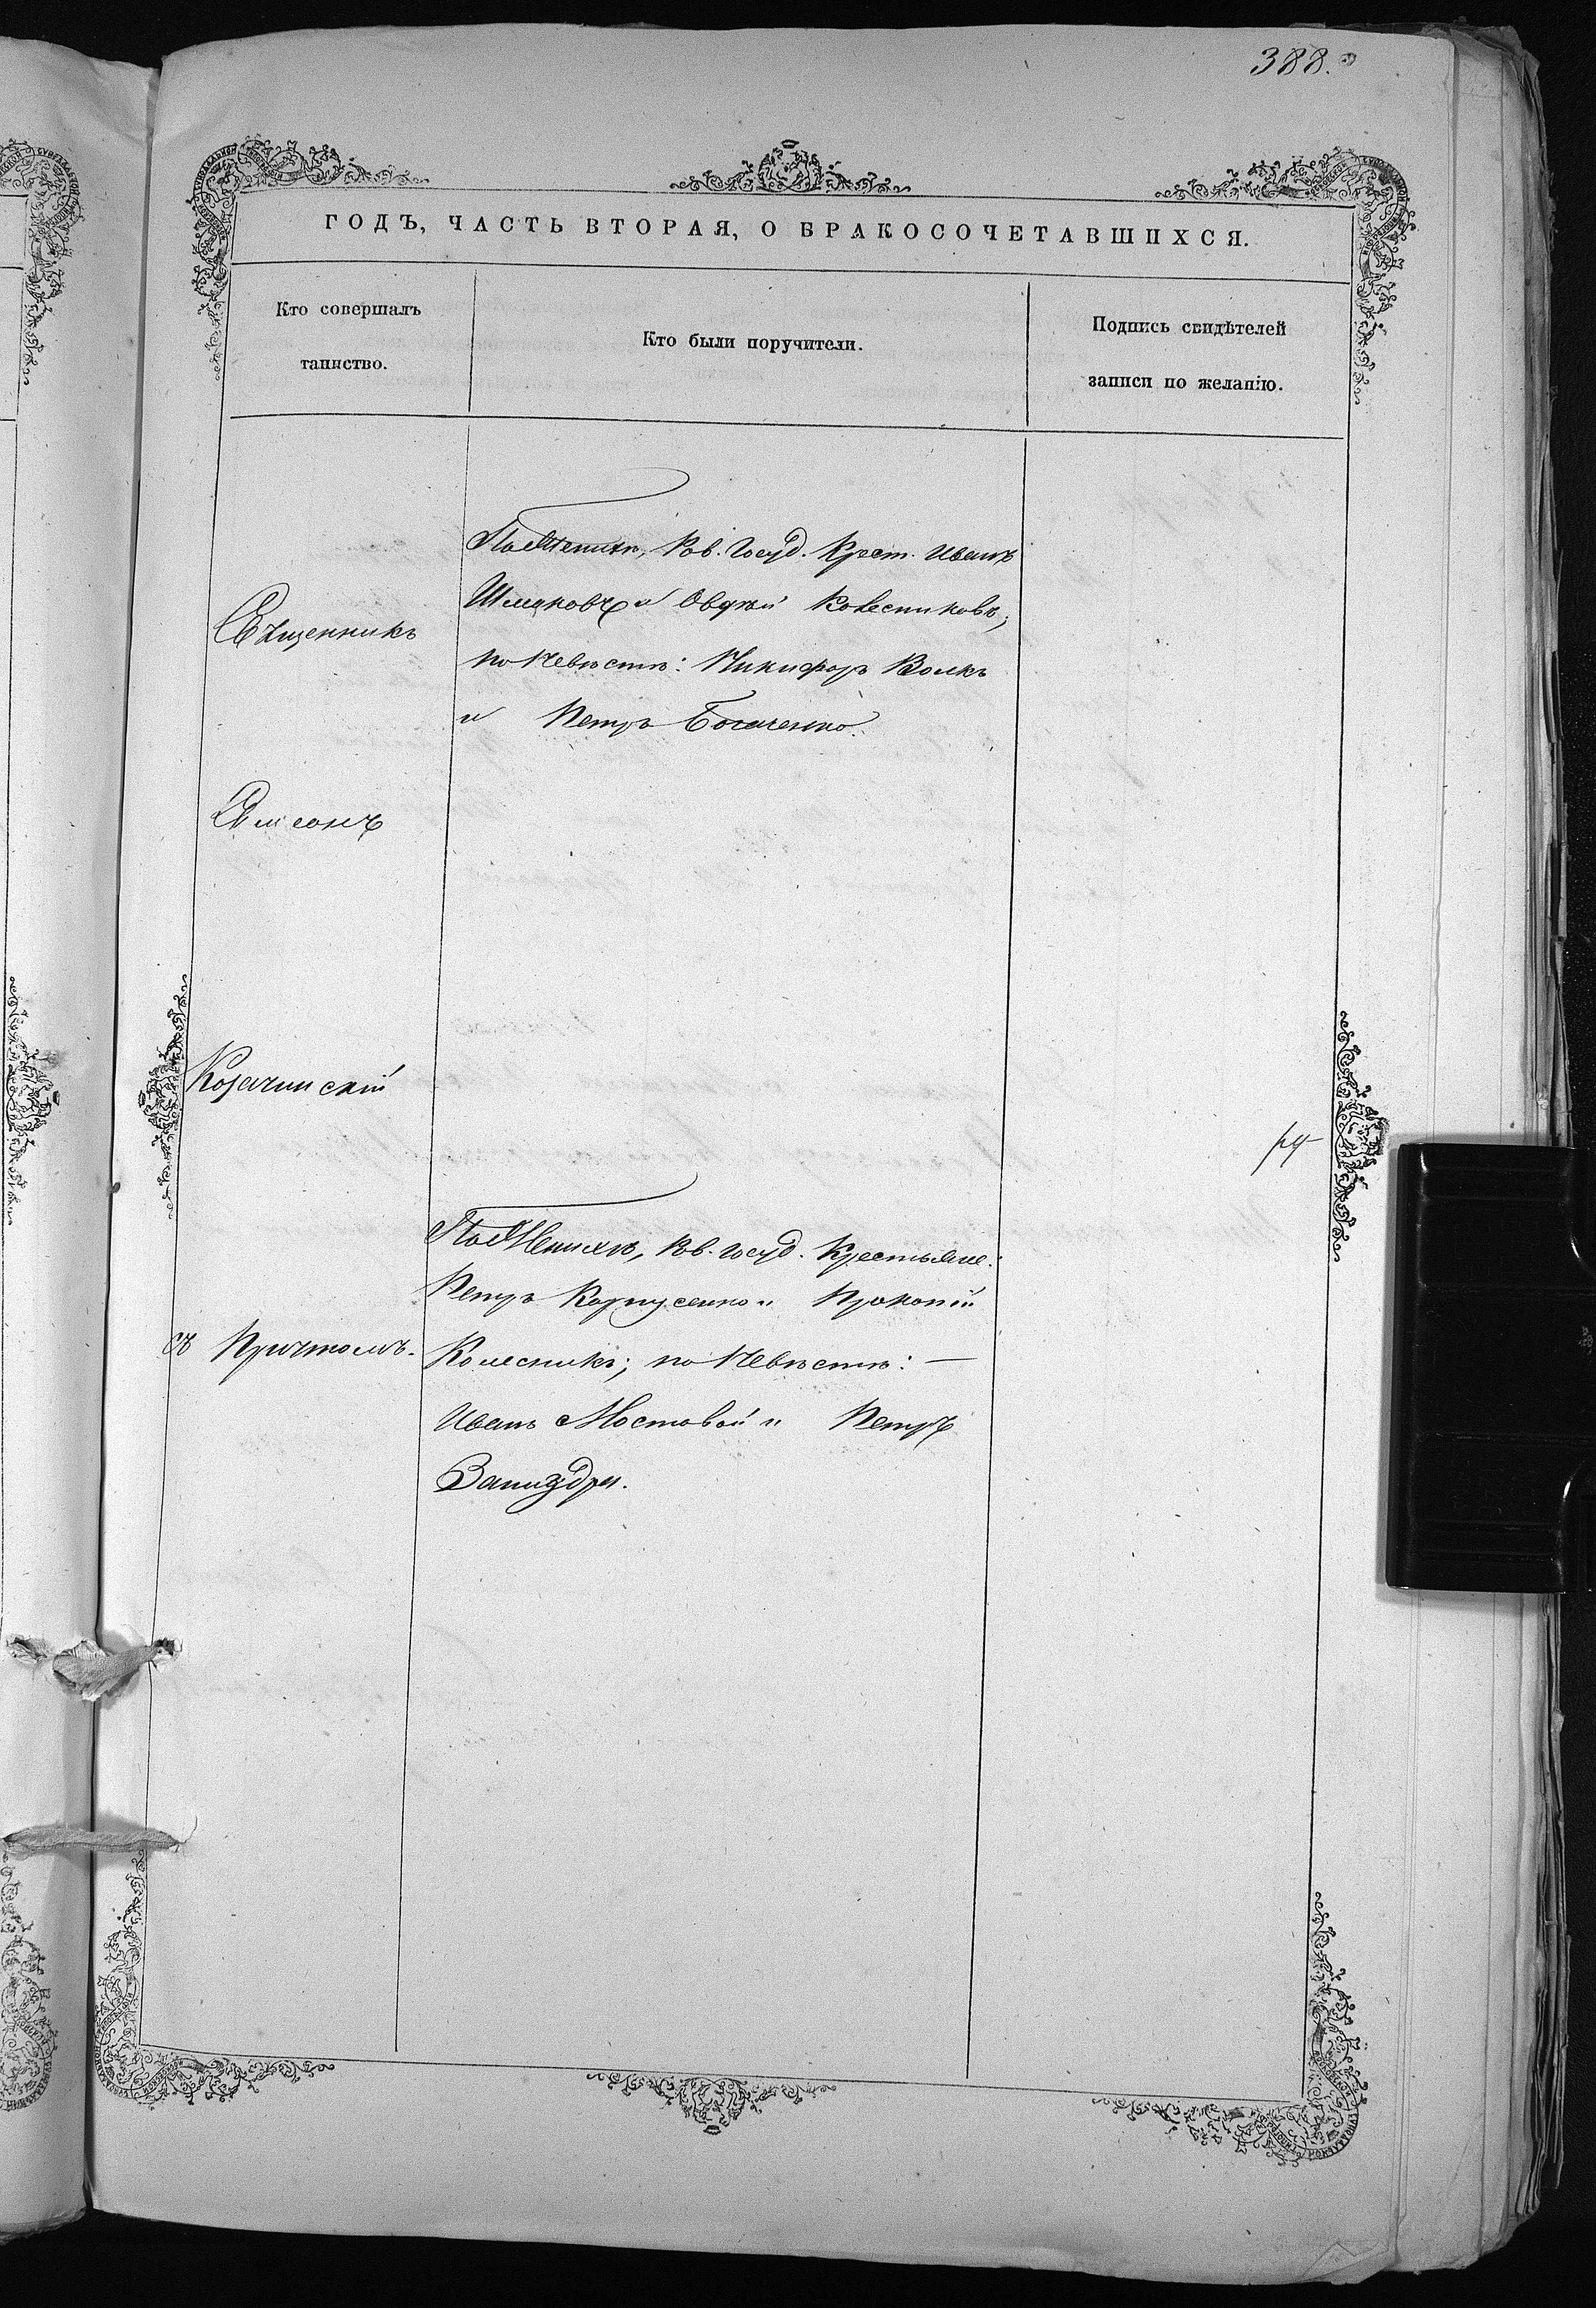 388.
ГОДЪ, ЧАСТЬ ВТОРАЯ, О БРАКОСОЧЕТАВШИХСЯ.
Кто совершалъ
таинство.
Кто были поручители.
Подпись свидѣтелей
записи по желанію.
По Женихѣ, Ков. Госуд. Крест. Иванъ
Шмаковъ и Овдѣй Колесниковъ;
по Невѣстѣ: Никифоръ Волкъ
и Петръ Богаченко.
Священникъ
Симеонъ
Козачинскій
съ Причтомъ.
По Женихѣ, Ков. Госуд. Крестьяне:
Петръ Карпусенко и Прокопій
Колесникъ; по Невѣстѣ: —
Иванъ Мостовой и Петръ